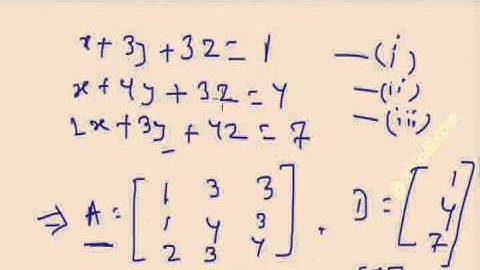 x+3y+3z=1 —(i)
x+4y+3z=4 —(ii)
2x+3y+4z=7 —(iii)
⇒ A=[1 3 3
1 4 3
2 3 4], D=[1
4
7]